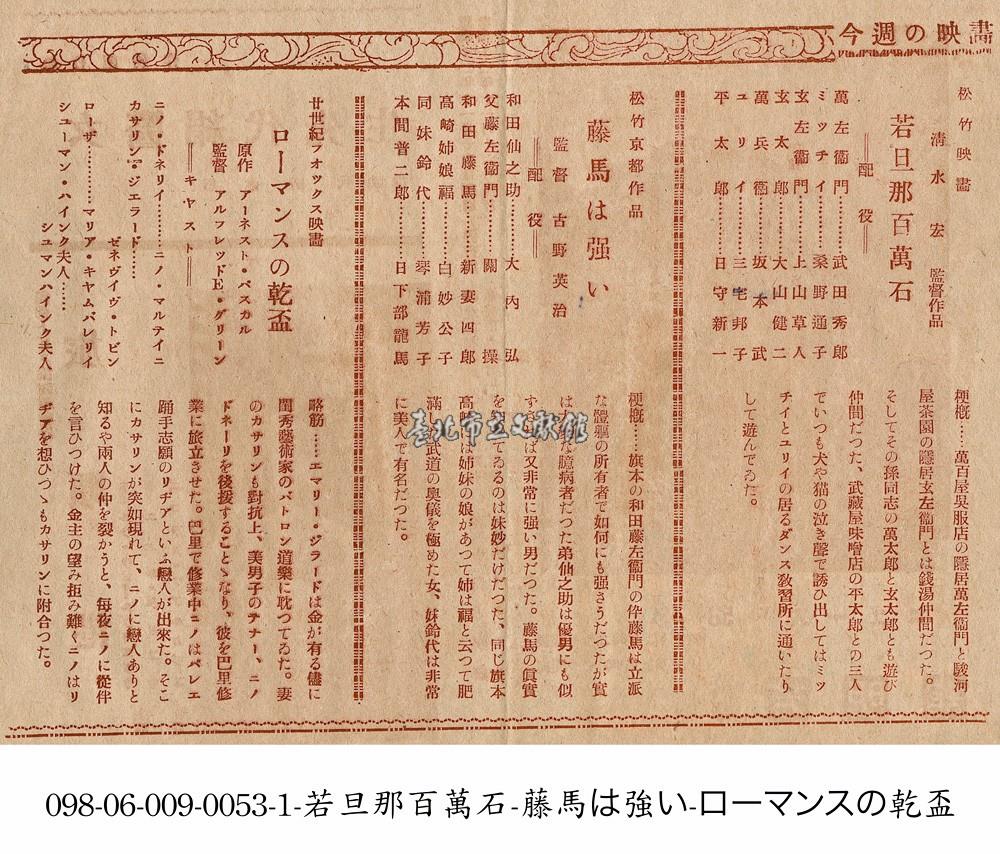 今週の映畫
松竹映畫
清水宏 監督作品
若旦那百萬石
配役
萬左衞門………武田秀郎
ミッチイ………桑野通子
玄左衞門………上山草人
玄太郎………大山健二
萬兵衞………坂本武
ユリイ………三宅邦子
平太郎………日守新一
梗概……萬百屋吳服店の隱居萬左衞門と駿河
屋茶園の隱居玄左衞門とは銭湯仲間だつた。
そしてその孫同志の萬太郎と玄太郎とも遊び
仲間だつた、武藏屋味噌店の平太郎との三人
でいつも犬や猫の泣き聲で誘ひ出してはミツ
チイとユリイの居るダンス敎習所に通いたり
して遊んでゐた。
松竹京都作品
藤馬は强い
監督 古野英治
配役
和田仙之助………大內弘
父藤左衞門………關操
和田藤馬………新妻四郎
高崎姉娘福………白妙公子
同妹鈴代………琴浦芳子
本間普二郎………日下部龍馬
梗槪……旗本の和田藤左衞門の伜藤馬は立派
な體軀の所有者で如何にも强さうだつたが實
は臆病者だつた弟仙之助は優男にも似
ず又非常に强い男だつた。藤馬の眞實
をてゐるのは妹妙だけだつた、同じ旗本
高崎は姉妹の娘があつて姉は福と云つて肥
滿し武道の奥儀を極めた女、妹鈴代は非常
に美人で有名だつた。
廿世紀フオックス映畫
ローマンスの乾盃
原作 アーネスト・パスカル
監督 アルフレッドE・グリーン
キヤスト
ニノ・ドネリイ………ニノ・マルテイニ
カサリン・ジエラード……
ゼネヴイヴ・トビン
ローザ………マリア・キヤムバレリイ
シューマン・ハインク夫人……
シュマンハインク夫人
略筋……エマリー・ジラードは金が有る儘に
閨秀藝術家のパトロン道樂に耽つてゐた。妻
のカサリンも對抗上、美男子のテナー、ニノ
ドネーリを後援することゝなり、彼を巴里修
業に旅立させた。巴里で修業中ニノはバレエ
踊手志願のリヂアといふ戀人が出來た。そこ
にカサリンが突如現れて、ニノに戀人ありと
知るや兩人の仲を裂かうと、每夜ニノに從伴
を言ひつけた。金主の望み拒み難くニノはリ
ヂアを想ひつゝもカサリンに附合つた。
臺北市立文獻館
098-06-009-0053-1-若旦那百萬石-藤馬は強い-ローマンスの乾盃